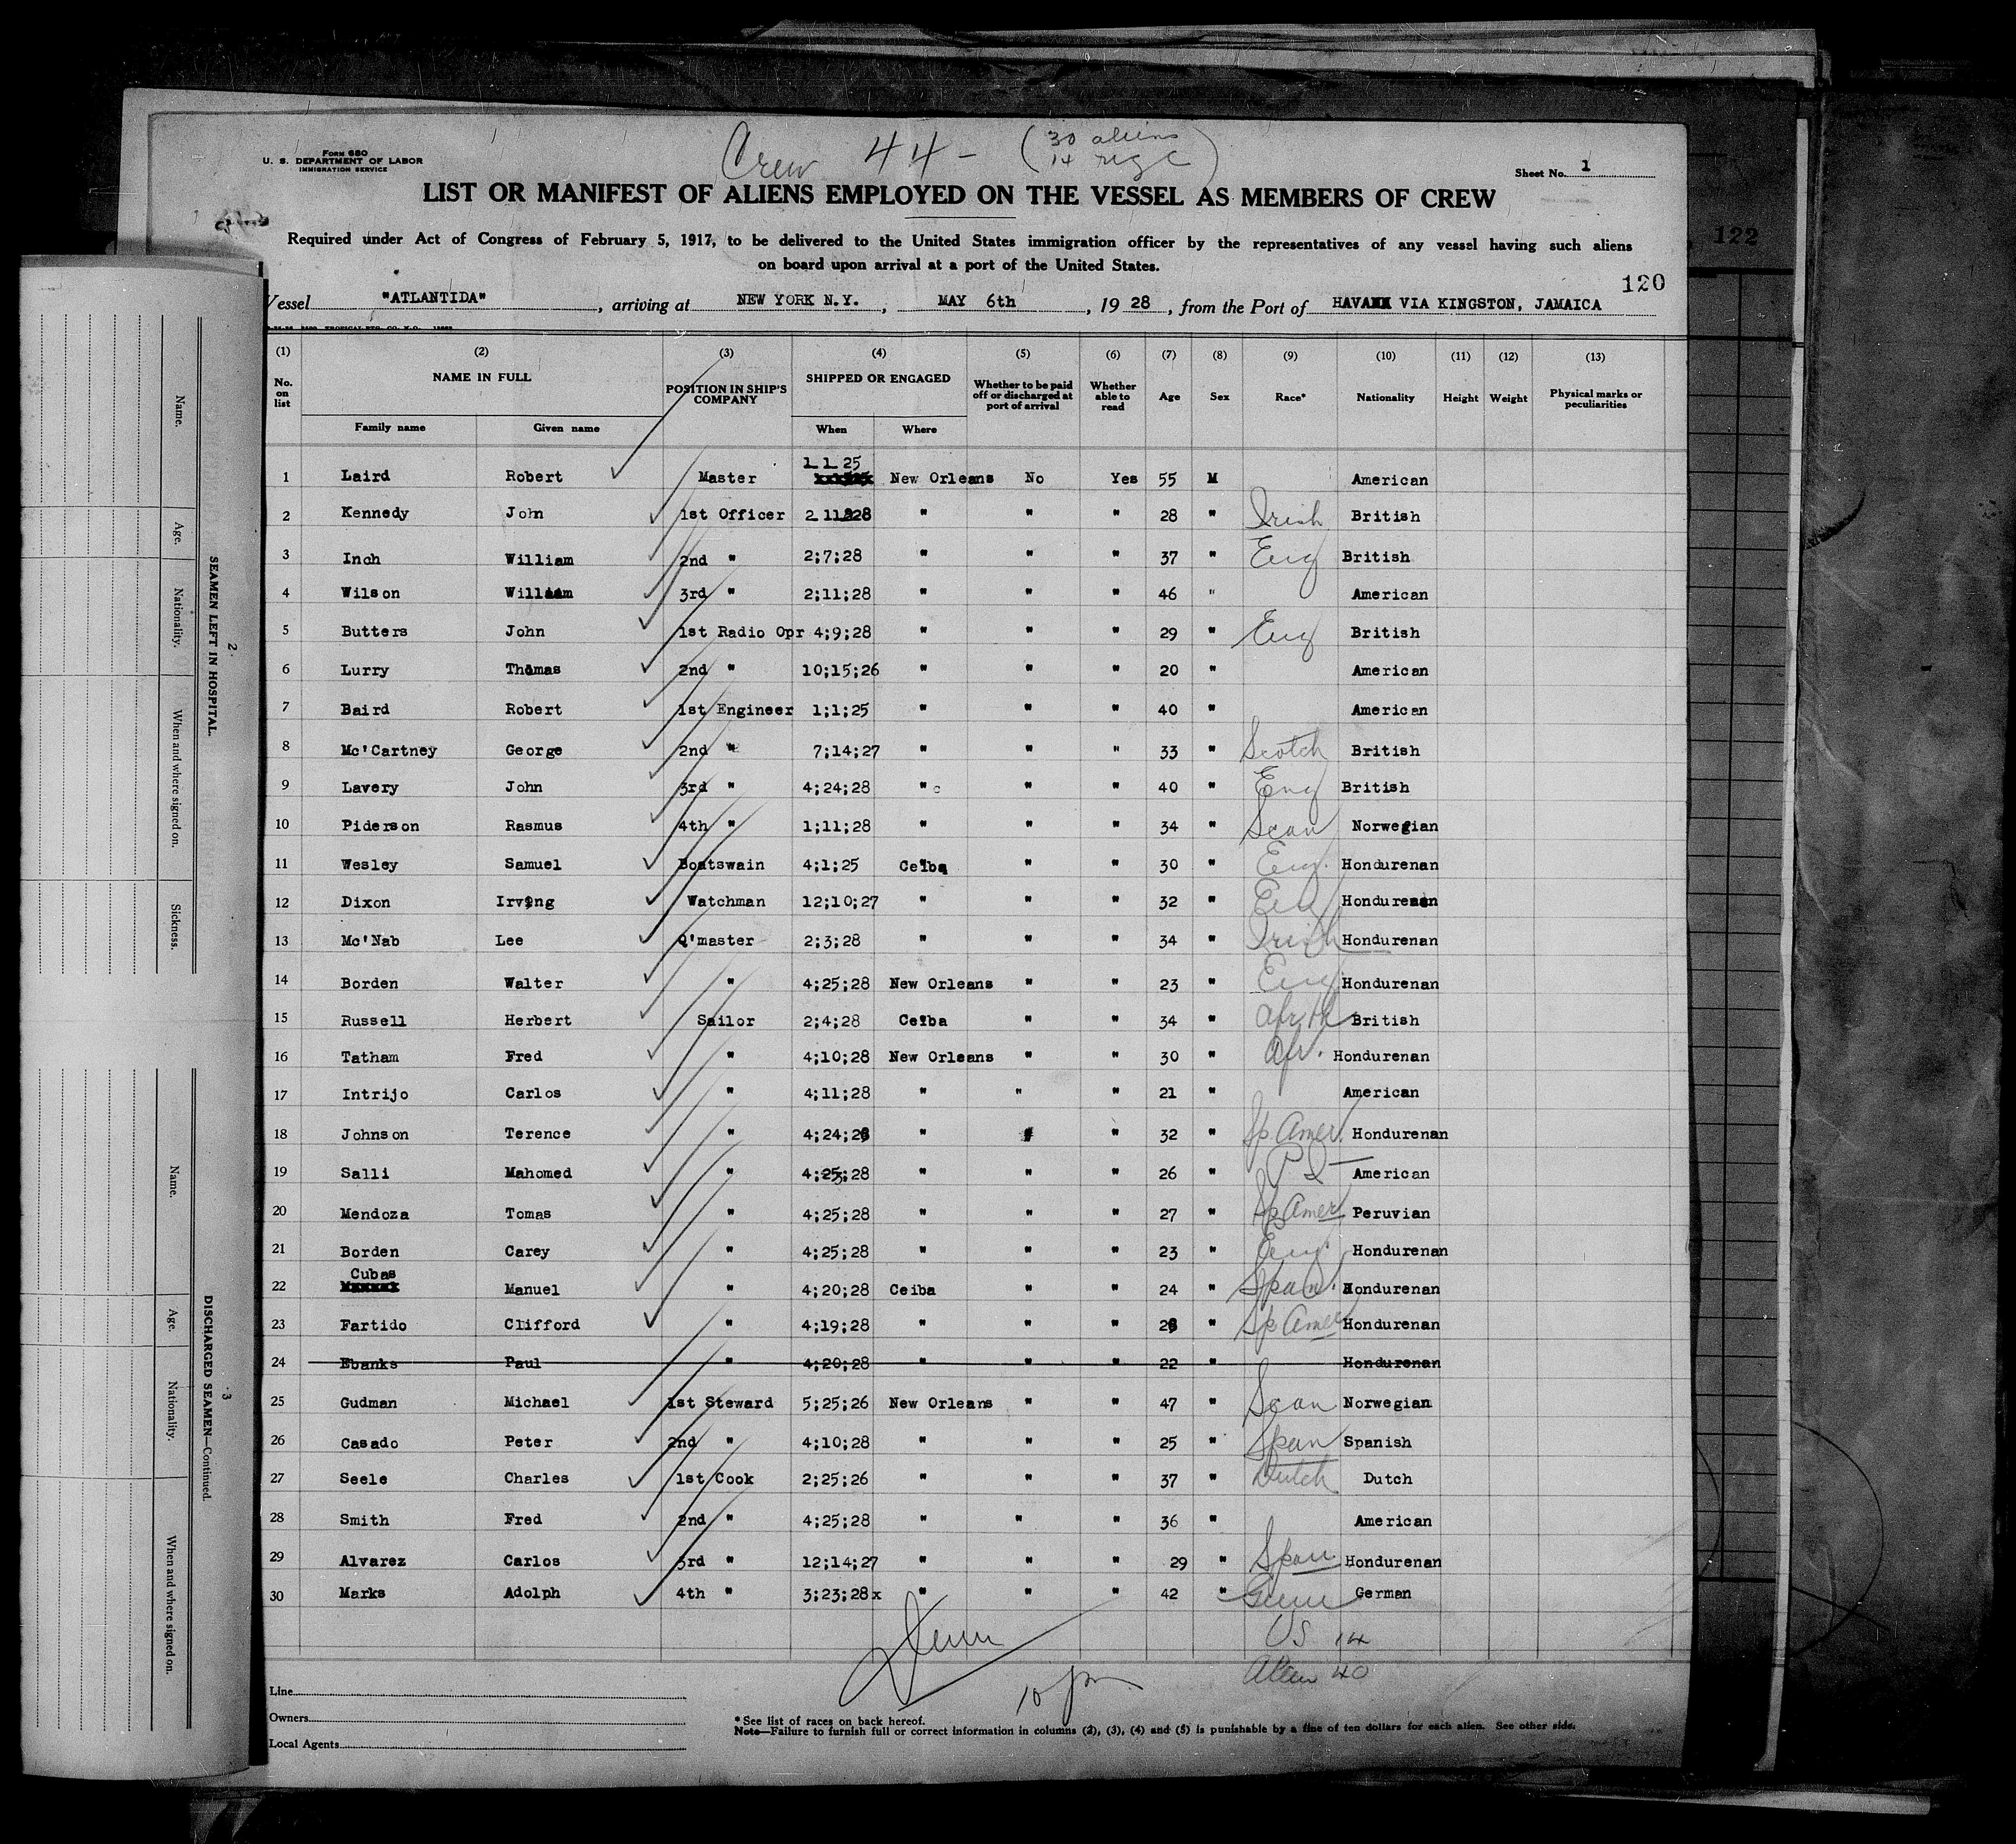 Crew 44 - (30 aliens
14
FORM 680
U. S. DEPARTMENT OF LABOR
IMMIGRATION SERVICE
Sheet No. 1
LIST OR MANIFEST OF ALIENS EMPLOYED ON THE VESSEL AS MEMBERS OF CREW
Required under Act of Congress of February 5, 1917, to be delivered to the United States immigration officer by the representatives of any vessel having such aliens
on board upon arrival at a port of the United States.
122
120
Vessel "ATLANTIDA", arriving at NEW YORK N.Y., MAY 6th, 1928, from the Port of HAVANA VIA KINGSTON, JAMAICA
(1) (2) (3) (4) (5) (6) (7) (8) (9) (10) (11) (12) (13)
No. on list NAME IN FULL Family name Given name POSITION IN SHIP'S COMPANY SHIPPED OR ENGAGED When Where Whether to be paid off or discharged at port of arrival Whether able to read Age Sex Race* Nationality Height Weight Physical marks or peculiarities
1 Laird Robert Master 1 1 25 New Orleans No Yes 55 M American
2 Kennedy John 1st Officer 2 11 28 " " " 28 " Irish British
3 Inch William 2nd " 2;7;28 " " " 37 " Eng British
4 Wilson William 3rd " 2;11;28 " " " 46 " American
5 Butters John 1st Radio Opr 4;9;28 " " " 29 " Eng British
6 Lurry Thomas 2nd " 10;15;26 " " " 20 " American
7 Baird Robert 1st Engineer 1;1;25 " " " 40 " American
8 Mc'Cartney George 2nd " 7;14;27 " " " 33 " Scotch British
9 Lavery John 3rd " 4;24;28 " " " 40 " Eng British
10 Piderson Rasmus 4th " 1;11;28 " " " 34 " Scan Norwegian
11 Wesley Samuel Boatswain 4;1;25 Ceiba " " 30 " Eng. Hondurenan
12 Dixon Irving Watchman 12;10;27 " " " 32 " Eng Hondurenan
13 Mc'Nab Lee Q'master 2;3;28 " " " 34 " Irish Hondurenan
14 Borden Walter " 4;25;28 New Orleans " " 23 " Eng Hondurenan
15 Russell Herbert Sailor 2;4;28 Ceiba " " 34 " Afr British
16 Tatham Fred " 4;10;28 New Orleans " " 30 " Afr. Hondurenan
17 Intrijo Carlos " 4;11;28 " " " 21 " American
18 Johnson Terence " 4;24;28 " " " 32 " Sp. Amer. Hondurenan
19 Salli Mahomed " 4;25;28 " " " 26 " American
20 Mendoza Tomas " 4;25;28 " " " 27 " Sp Amer Peruvian
21 Borden Carey " 4;25;28 " " " 23 " Eng. Hondurenan
22 Cubas Manuel " 4;20;28 Ceiba " " 24 " Span. Hondurenan
23 Fartido Clifford " 4;19;28 " " " 28 " Sp Amer Hondurenan
24 Ebanks Paul " 4;20;28 " " " 22 " Hondurenan
25 Gudman Michael 1st Steward 5;25;26 New Orleans " " 47 " Scan Norwegian
26 Casado Peter 2nd " 4;10;28 " " " 25 " Span Spanish
27 Seele Charles 1st Cook 2;25;26 " " " 37 " Dutch Dutch
28 Smith Fred 2nd " 4;25;28 " " " 36 " American
29 Alvarez Carlos 3rd " 12;14;27 " " " 29 " Span Hondurenan
30 Marks Adolph 4th " 3;23;28x " " " 42 " Germ German
US 14
Alien 40
10 pm
Line
Owners
Local Agents
*See list of races on back hereof.
Note—Failure to furnish full or correct information in columns (2), (3), (4) and (5) is punishable by a fine of ten dollars for each alien. See other side.
2
SEAMEN LEFT IN HOSPITAL.
Name. Age. Nationality. When and where signed on. Sickness.
3
DISCHARGED SEAMEN—Continued.
Name. Age. Nationality. When and where signed on.